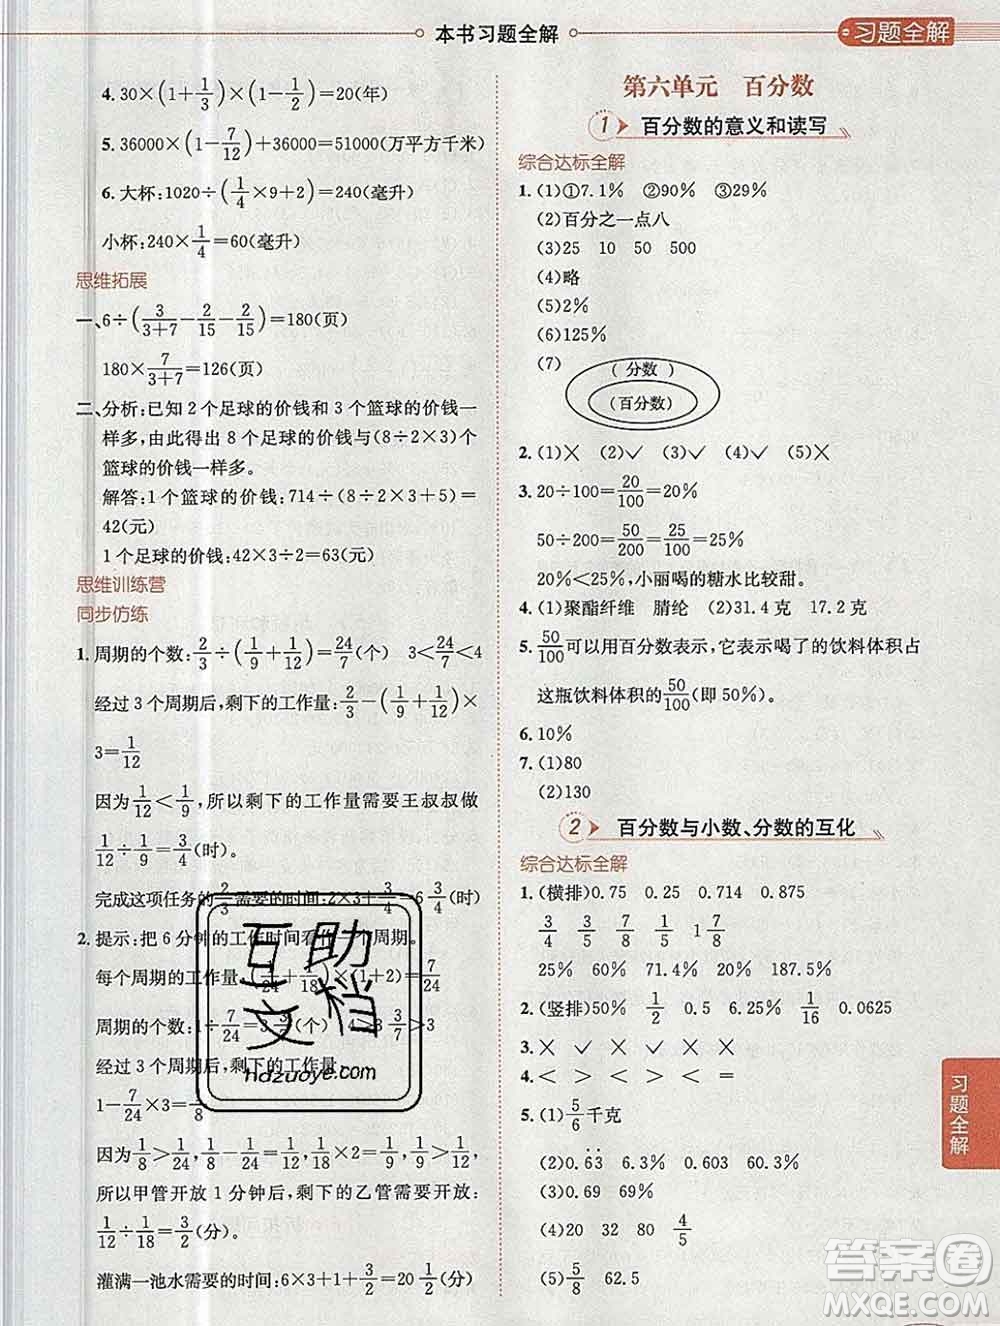 本书习题全解
习题全解
4. 30×(1+1/3)×(1-1/2)=20(年)
5. 36000×(1-7/12)+36000=51000(万平方千米)
6. 大杯:1020÷(1/4×9+2)=240(毫升)
小杯:240×1/4=60(毫升)
思维拓展
一、6÷(3/(3+7)-2/15-2/15)=180(页)
180×7/(3+7)=126(页)
二、分析:已知2个足球的价钱和3个篮球的价钱一
样多,由此得出8个足球的价钱与(8÷2×3)个
篮球的价钱一样多。
解答:1个篮球的价钱:714÷(8÷2×3+5)=
42(元)
1个足球的价钱:42×3÷2=63(元)
思维训练营
同步仿练
1. 周期的个数:2/3÷(1/9+1/12)=24/7(个) 3<24/7<4
经过3个周期后,剩下的工作量:2/3-(1/9+1/12)×
3=1/12
因为1/12<1/9,所以剩下的工作量需要王叔叔做
1/12÷1/9=3/4(时)。
完成这项任务的2/3需要的时间:2×3+3/4=6 3/4(时)
2. 提示:把6分钟的工作时间看作一个周期。
每个周期的工作量:(1/24+1/18)×(1+2)=7/24
周期的个数:1÷7/24=3 3/7(个) 4>3 3/7>3
经过3个周期后,剩下的工作量:
1-7/24×3=1/8
因为1/8>1/24,1/8-1/24=1/12,1/18×2=1/9>1/12,
所以甲管开放1分钟后,剩下的乙管需要开放:
1/12÷1/18=3/2(分)。
灌满一池水需要的时间:6×3+1+3/2=20 1/2(分)
第六单元 百分数
1 百分数的意义和读写
综合达标全解
1. (1)①7.1% ②90% ③29%
(2)百分之一点八
(3)25 10 50 500
(4)略
(5)2%
(6)125%
(7)
(分数)
(百分数)
2. (1)× (2)✓ (3)✓ (4)✓ (5)×
3. 20÷100=20/100=20%
50÷200=50/200=25/100=25%
20%<25%,小丽喝的糖水比较甜。
4. (1)聚酯纤维 腈纶 (2)31.4克 17.2克
5. 50/100可以用百分数表示,它表示喝了的饮料体积占
这瓶饮料体积的50/100(即50%)。
6. 10%
7. (1)80
(2)130
2 百分数与小数、分数的互化
综合达标全解
1. (横排)0.75 0.25 0.714 0.875
3/4 3/5 7/8 1/5 1 7/8
25% 60% 71.4% 20% 187.5%
2. (竖排)50% 1/2 0.5 6.25% 1/16 0.0625
3. × × ✓ ✓ ×
4. < > < > > =
5. (1)5/6千克
(2)0.6̇3̇ 6.3% 0.603 60.3%
(3)0.69 69%
(4)20 32 80 4/5
(5)5/8 62.5
习题全解
互助文档
hdzuoye.com
答案圈
MXQE.COM